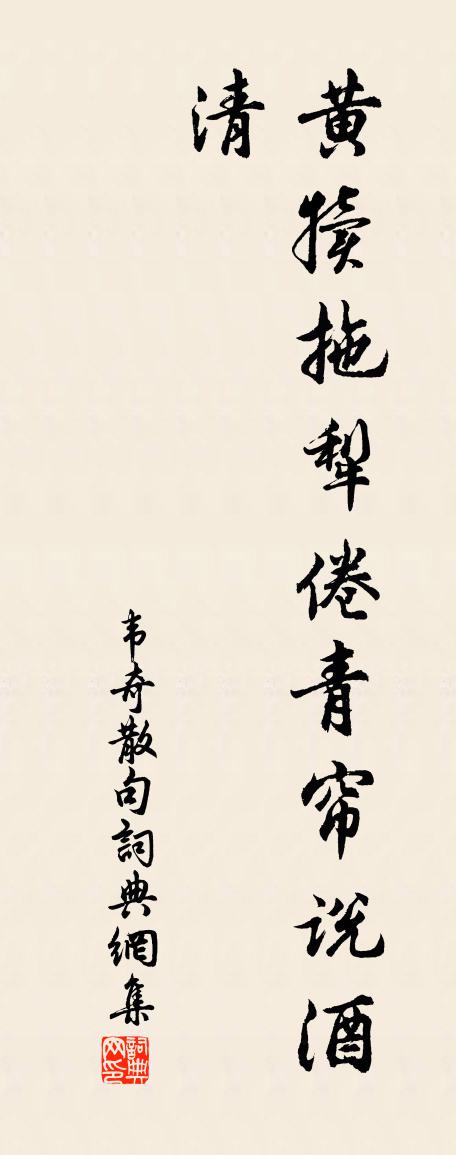 黄犊拖犁倦青帘说酒
清
韦奇散句詞典網集
詞典网印